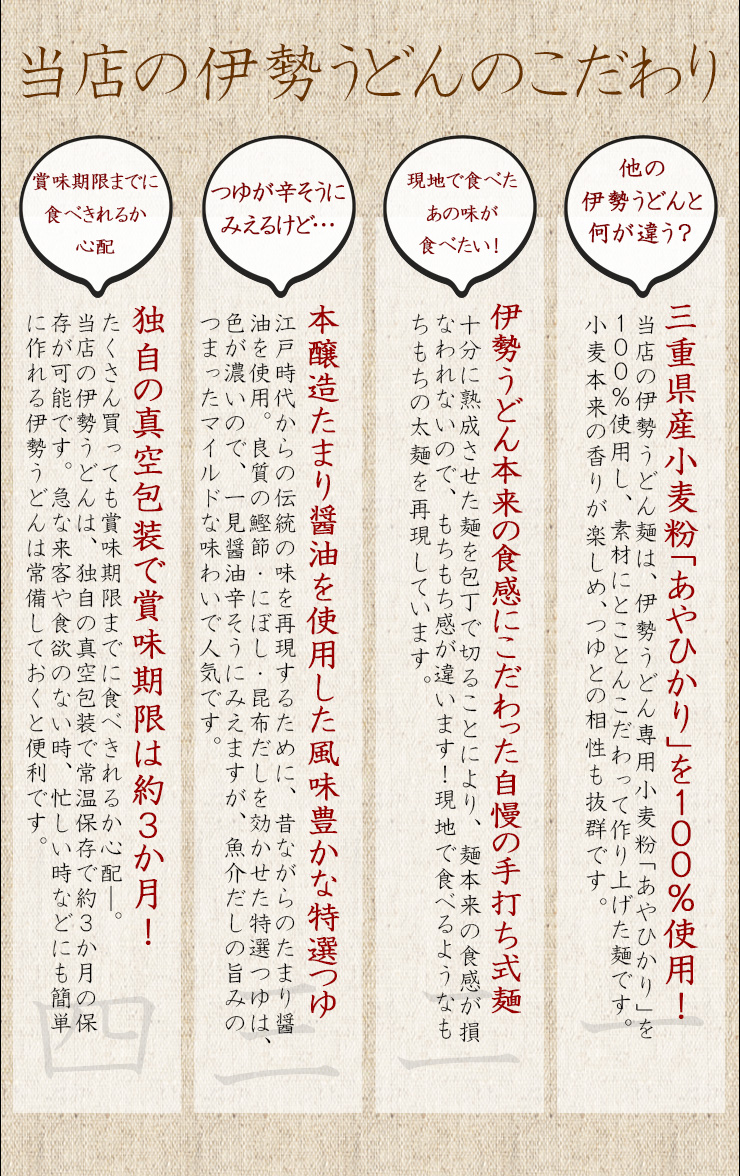 当店の伊勢うどんのこだわり
他の
伊勢うどんと
何が違う?
三重県産小麦粉「あやひかり」を100%使用!
当店の伊勢うどん麺は、伊勢うどん専用小麦粉「あやひかり」を
100%使用し、素材にとことんこだわって作り上げた麺です。
小麦本来の香りが楽しめ、つゆとの相性も抜群です。
一
現地で食べた
あの味が
食べたい!
伊勢うどん本来の食感にこだわった自慢の手打ち式麺
十分に熟成させた麺を包丁で切ることにより、麺本来の食感が損
なわれないので、もちもち感が違います!現地で食べるようなも
ちもちの太麺を再現しています。
二
つゆが辛そうに
みえるけど…
本醸造たまり醤油を使用した風味豊かな特選つゆ
江戸時代からの伝統の味を再現するために、昔ながらのたまり醤
油を使用。良質の鰹節・にぼし・昆布だしを効かせた特選つゆは、
色が濃いので、一見醤油辛そうにみえますが、魚介だしの旨みの
つまったマイルドな味わいで人気です。
三
賞味期限までに
食べきれるか
心配
独自の真空包装で賞味期限は約3か月!
たくさん買っても賞味期限までに食べきれるか心配―。
当店の伊勢うどんは、独自の真空包装で常温保存で約3か月の保
存が可能です。急な来客や食欲のない時、忙しい時などにも簡単
に作れる伊勢うどんは常備しておくと便利です。
四